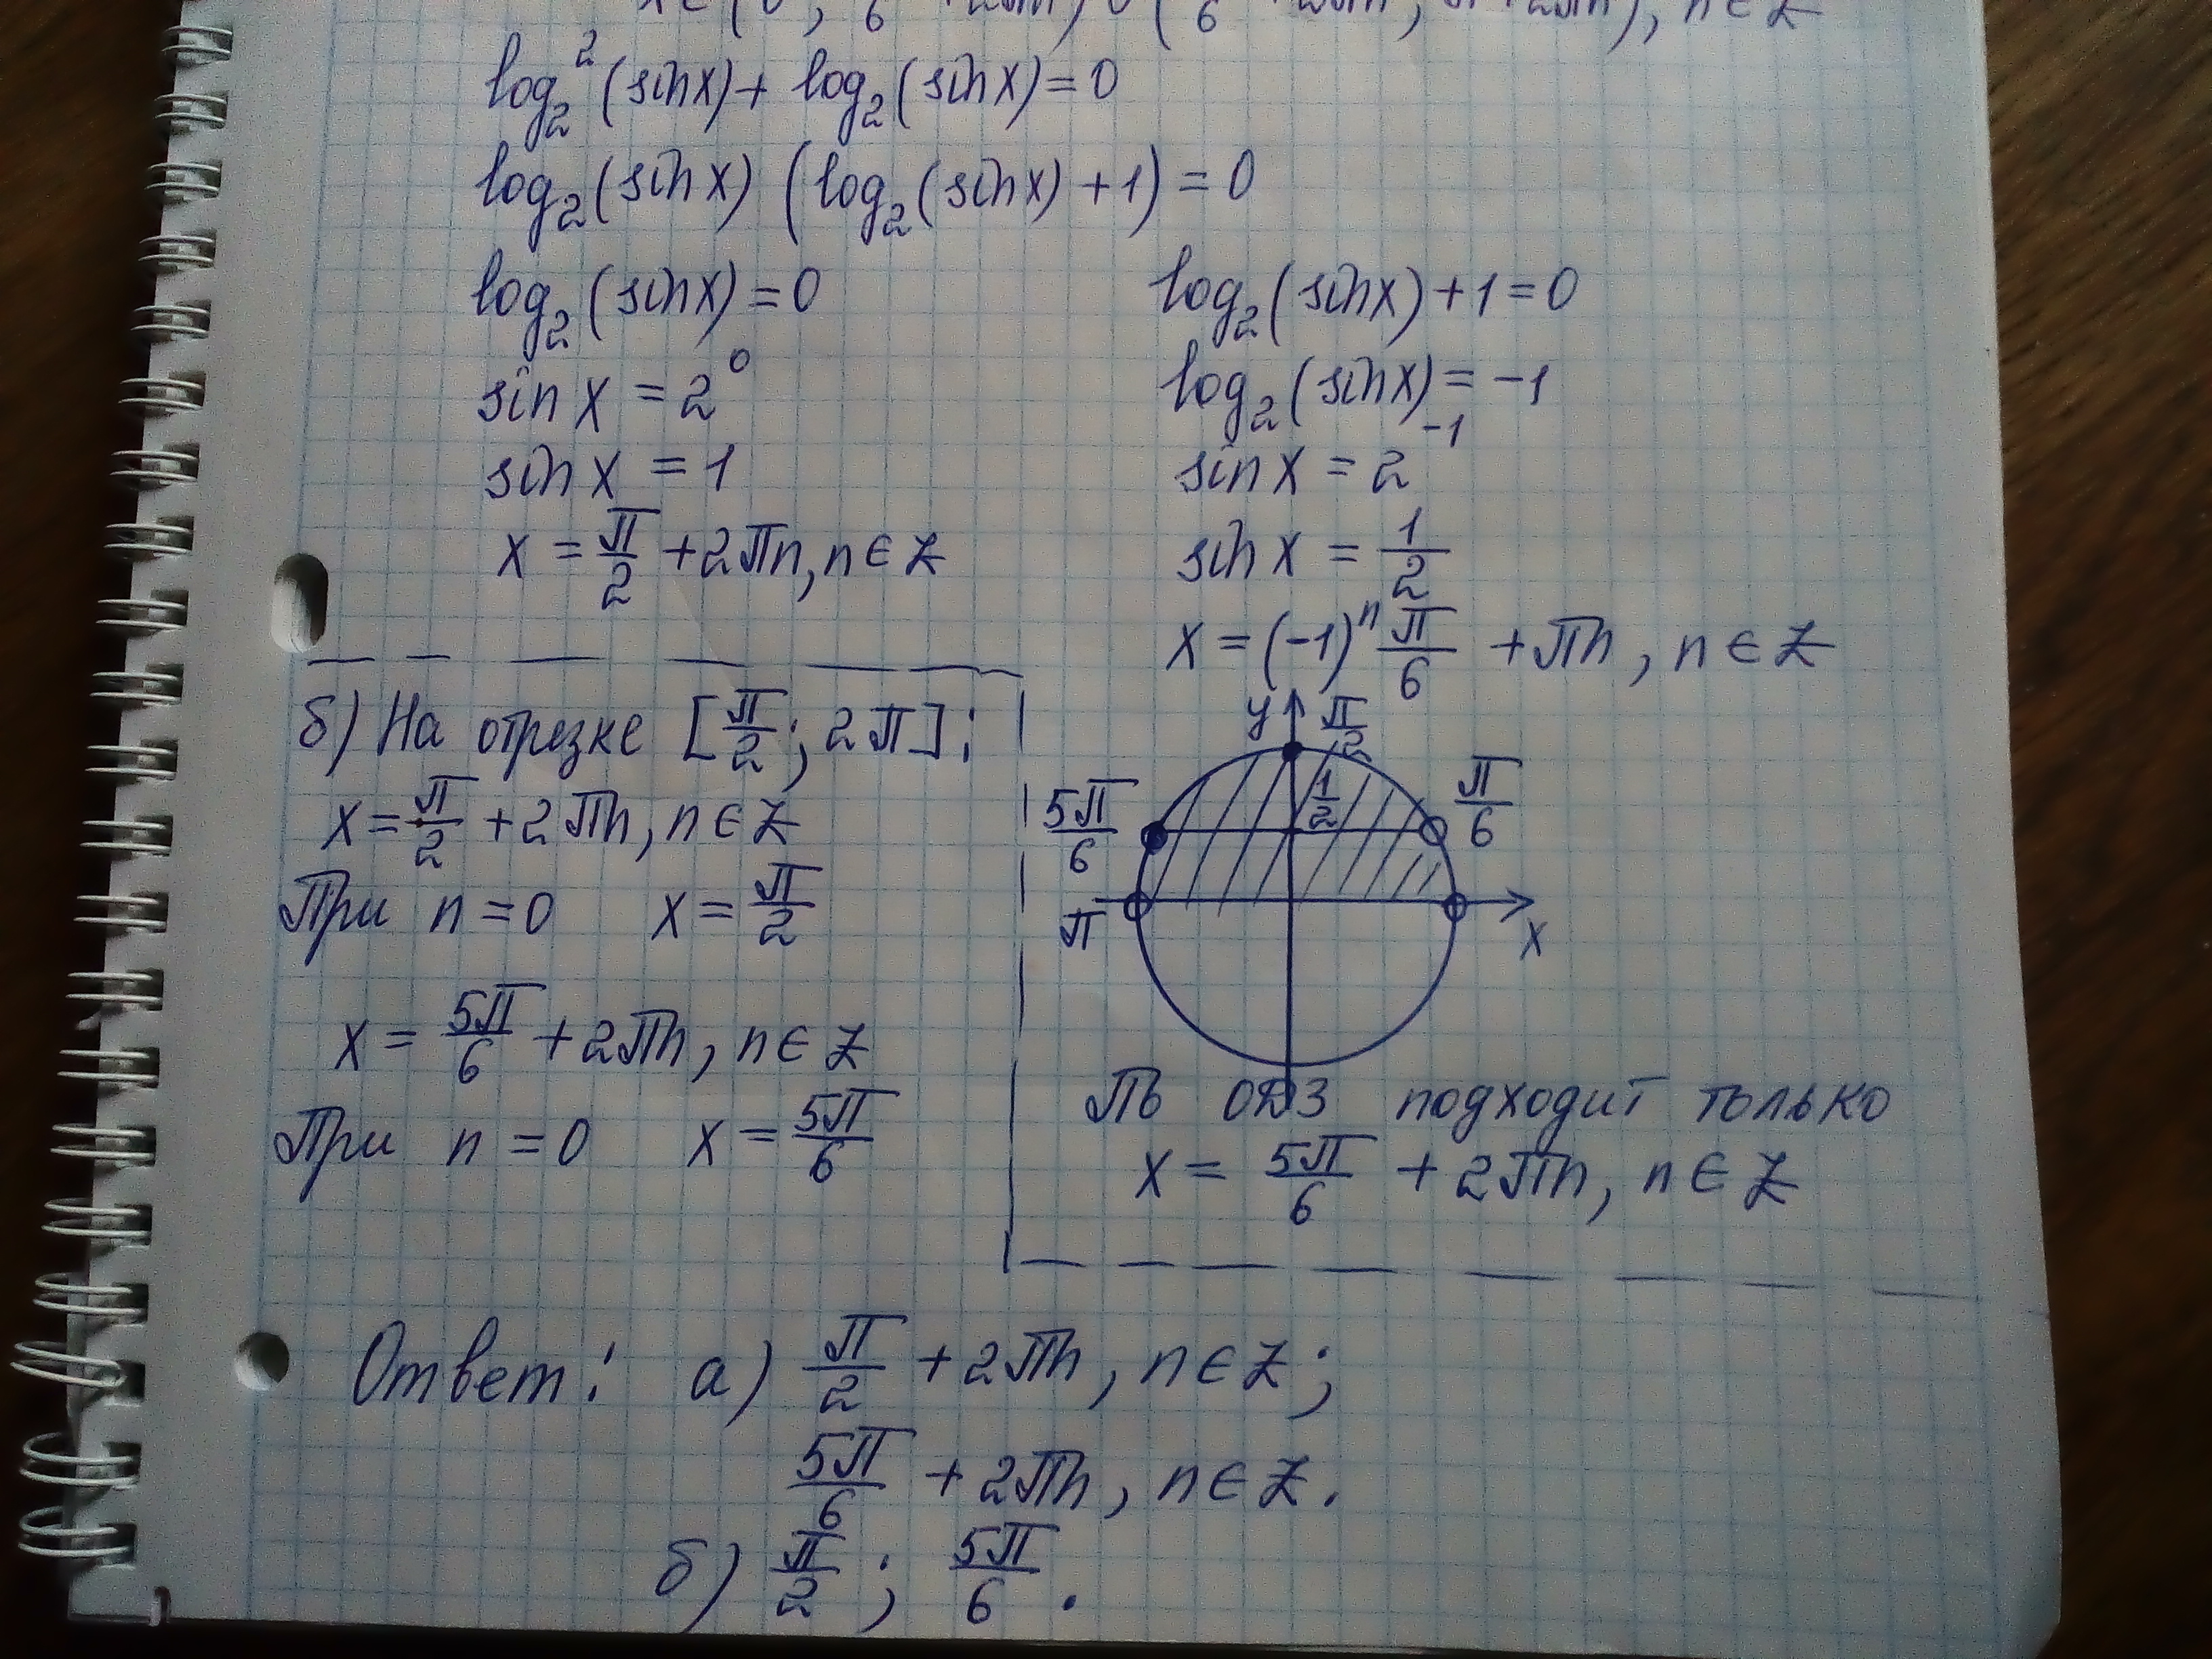 log₂²(sinx) + log₂(sinx) = 0
log₂(sinx) (log₂(sinx) + 1) = 0
log₂(sinx) = 0
sinx = 2⁰
sinx = 1
x = π/2 + 2πn, n ∈ Z
log₂(sinx) + 1 = 0
log₂(sinx) = -1
sinx = 2⁻¹
sinx = 1/2
x = (-1)ⁿ π/6 + πn, n ∈ Z
б) На отрезке [π/2; 2π]:
x = π/2 + 2πn, n ∈ Z
При n = 0 x = π/2
x = 5π/6 + 2πn, n ∈ Z
При n = 0 x = 5π/6
y
π/2
1/2
5π/6
π/6
π
x
По ОДЗ подходит только
x = 5π/6 + 2πn, n ∈ Z
Ответ: а) π/2 + 2πn, n ∈ Z;
5π/6 + 2πn, n ∈ Z.
б) π/2; 5π/6.